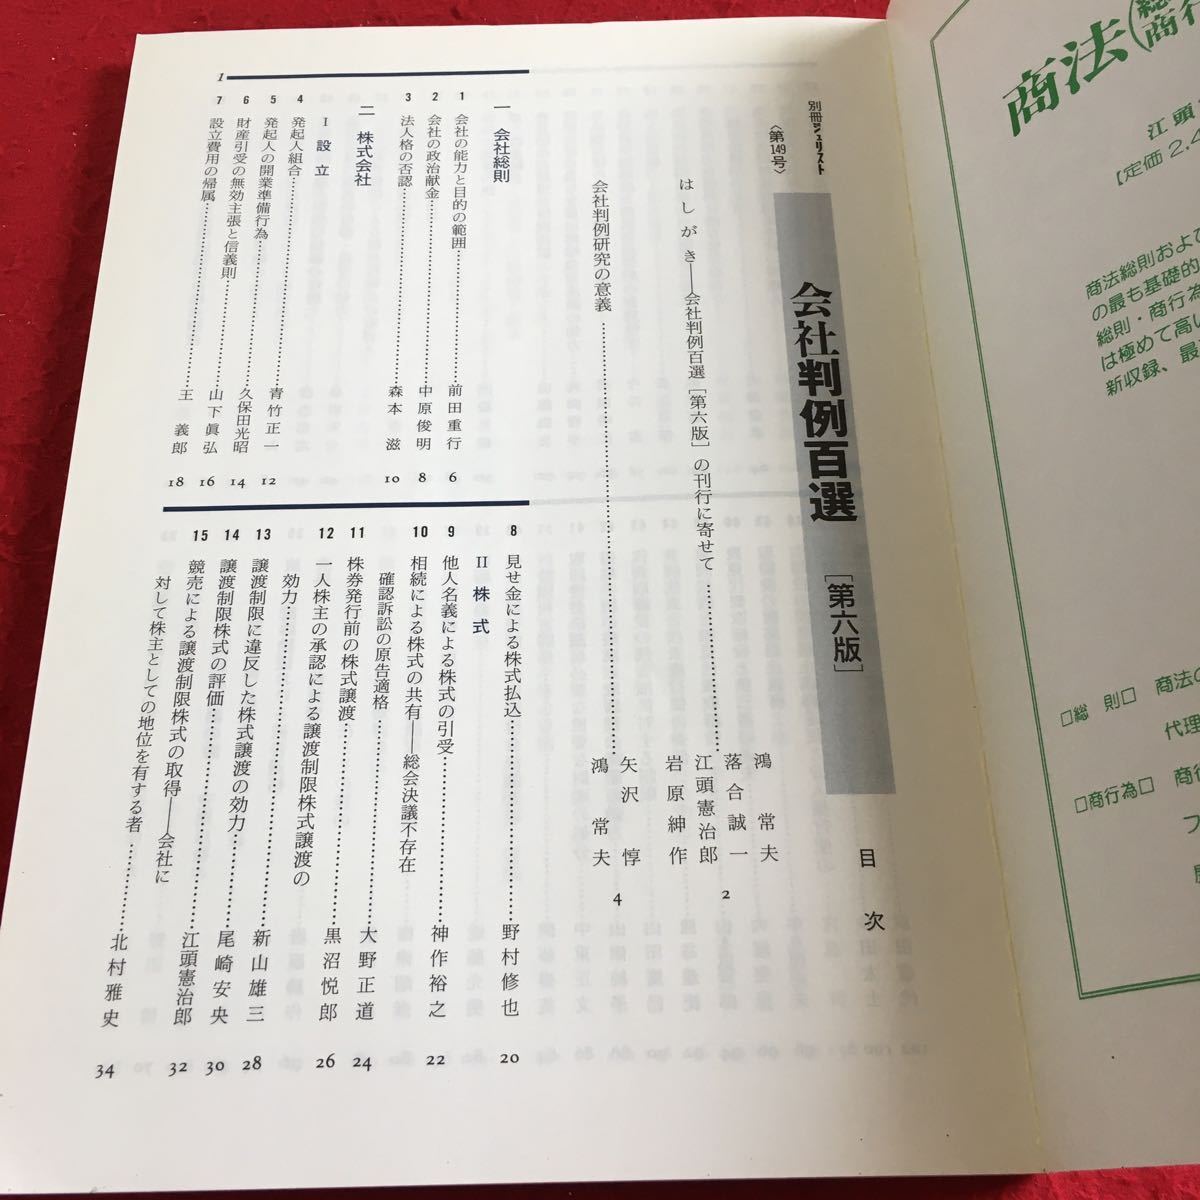 別冊ジュリスト
〈第149号〉
会社判例百選
［第六版］
目次
はしがき――会社判例百選［第六版］の刊行に寄せて
鴻 常夫
落合誠一
江頭憲治郎
岩原紳作
2
会社判例研究の意義
矢沢 惇
鴻 常夫
4
一 会社総則
1 会社の能力と目的の範囲 前田重行 6
2 会社の政治献金 中原俊明 8
3 法人格の否認 森本 滋 10
二 株式会社
I 設立
4 発起人組合 青竹正一 12
5 発起人の開業準備行為 久保田光昭 14
6 財産引受の無効主張と信義則 山下眞弘 16
7 設立費用の帰属 王 義郎 18
8 見せ金による株式払込 野村修也 20
II 株式
9 他人名義による株式の引受 神作裕之 22
10 相続による株式の共有――総会決議不存在
確認訴訟の原告適格 大野正道 24
11 株券発行前の株式譲渡 黒沼悦郎 26
12 一人株主の承認による譲渡制限株式譲渡の
効力 新山雄三 28
13 譲渡制限に違反した株式譲渡の効力 尾崎安央 30
14 譲渡制限株式の評価 江頭憲治郎 32
15 競売による譲渡制限株式の取得――会社に
対して株主としての地位を有する者 北村雅史 34
1
商法
江頭
［定価2,4
商法総則およ
の最も基礎的
総則・商行為
は極めて高い
新収録、最
□総 則□ 商法の
代理
□商行為□ 商行